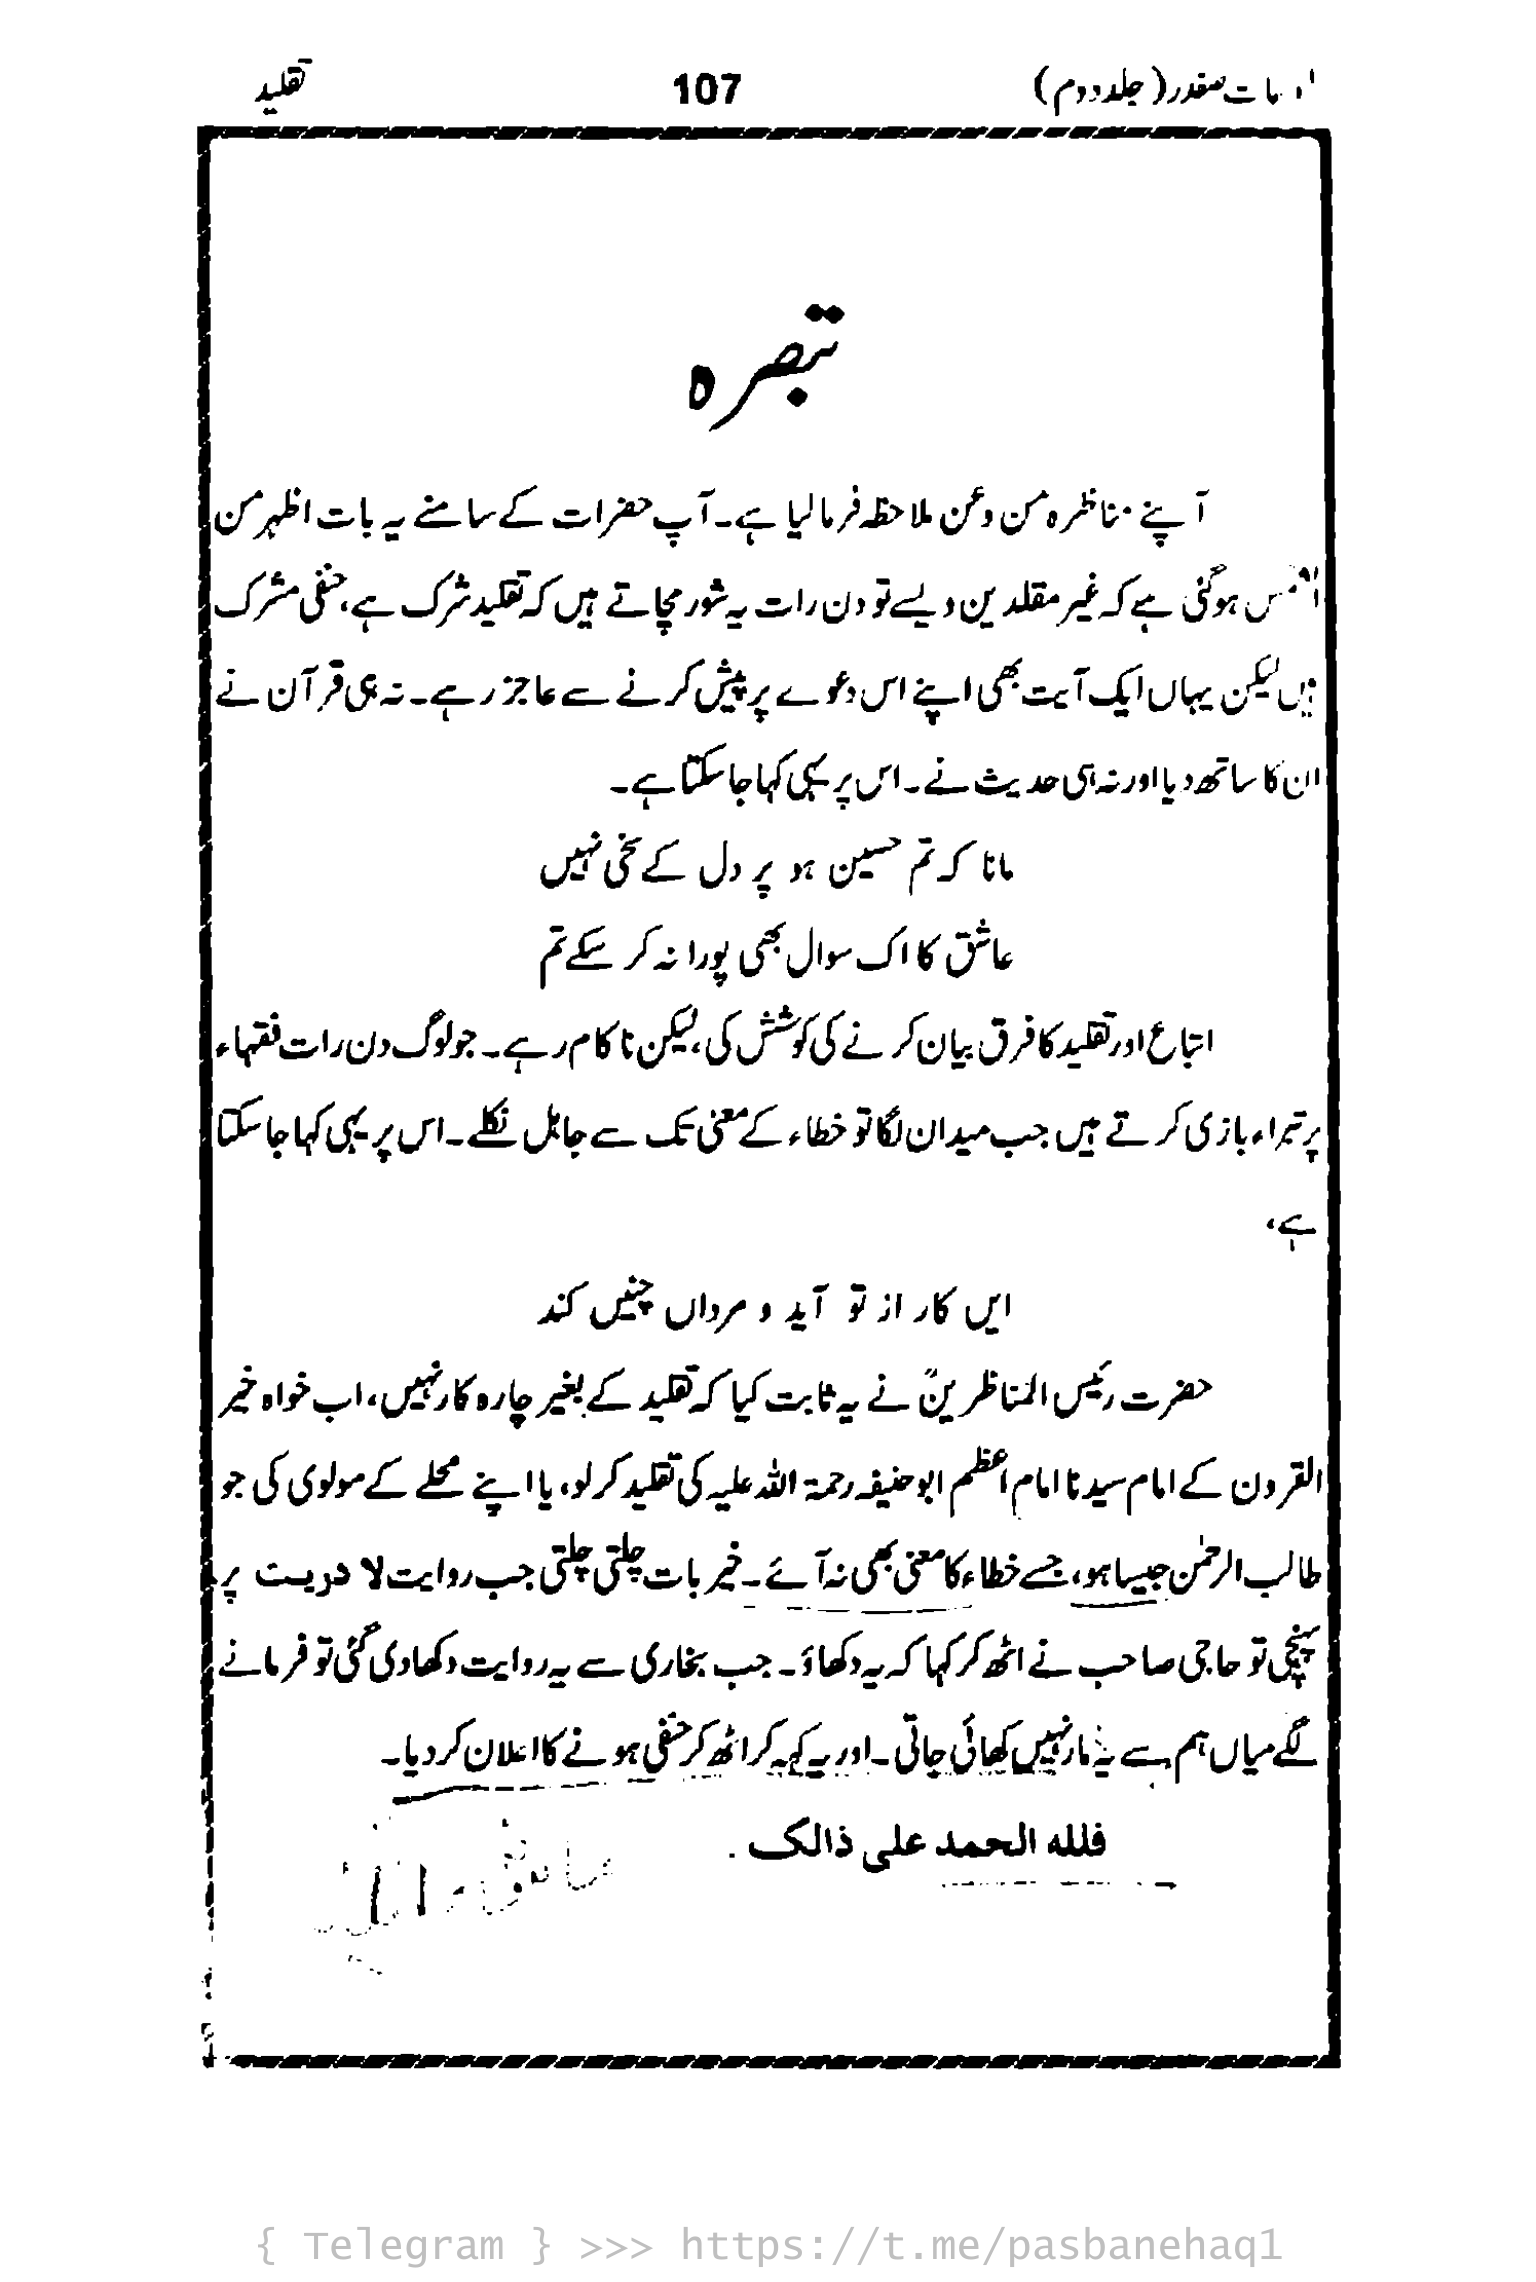 صفدر (جلد دوم) 107 تقلید
تبصرہ
آپنے مناظرہ من وعن ملاحظہ فرمالیا ہے۔ آپ حضرات کے سامنے یہ بات اظہر من
ہوگئی ہے کہ غیر مقلدین ویسے تو دن رات یہ شور مچاتے ہیں کہ تقلید شرک ہے، حنفی مشرک
ہیں لیکن یہاں ایک آیت بھی اپنے اس دعوے پر پیش کرنے سے عاجز رہے۔ نہ ہی قرآن نے
ان کا ساتھ دیا اور نہ ہی حدیث نے۔ اس پر یہی کہا جاسکتا ہے۔
مانا کہ تم حسین ہو پر دل کے سخی نہیں
عاشق کا اک سوال بھی پورا نہ کر سکے تم
اتباع اور تقلید کا فرق بیان کرنے کی کوشش کی، لیکن ناکام رہے۔ جو لوگ دن رات فقہاء
پر تبراء بازی کرتے ہیں جب میدان لگا تو خطاء کے معنی تک سے جاہل نکلے۔ اس پر یہی کہا جاسکتا
ہے،
ایں کار از تو آید و مرداں چنیں کند
حضرت رئیس المناظرینؒ نے یہ ثابت کیا کہ تقلید کے بغیر چارہ کار نہیں، اب خواہ خیر
القرون کے امام سیدنا امام اعظم ابوحنیفہ رحمۃ اللہ علیہ کی تقلید کرلو، یا اپنے محلے کے مولوی کی جو
طالب الرحمٰن جیسا ہو، جسے خطاء کا معنی بھی نہ آئے۔ خیر بات چلتی چلتی جب روایت لا دریت پر
پہنچی تو حاجی صاحب نے اٹھ کر کہا کہ یہ دکھاؤ۔ جب بخاری سے یہ روایت دکھادی گئی تو فرمانے
لگے میاں ہم سے یہ مار نہیں کھائی جاتی۔ اور یہ کہہ کر اٹھ کر حنفی ہونے کا اعلان کردیا۔
فللہ الحمد علی ذالک.
{ Telegram } >>> https://t.me/pasbanehaq1